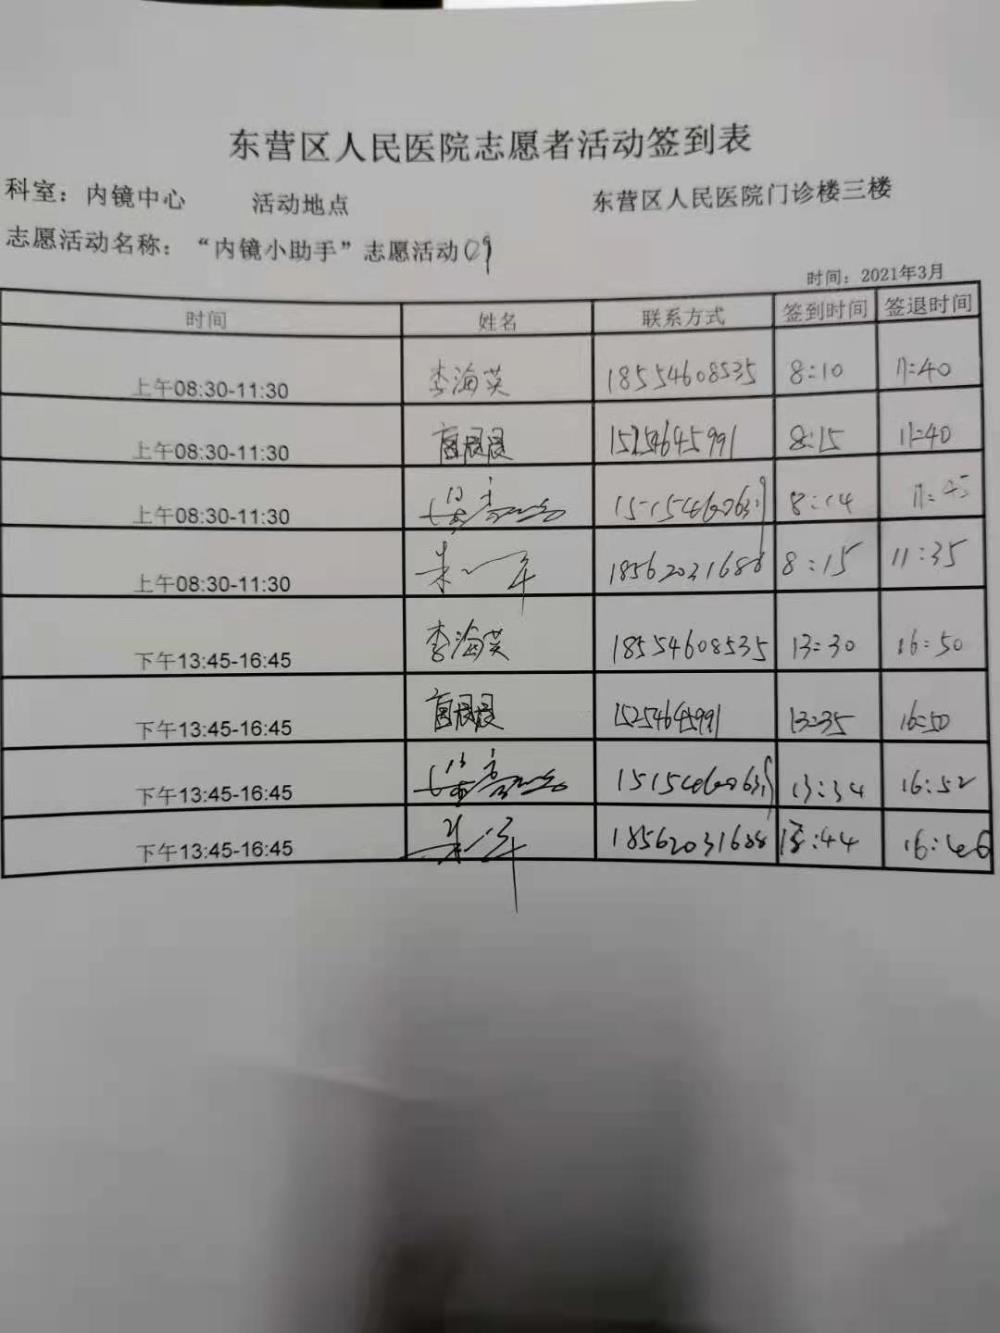 东营区人民医院志愿者活动签到表
科室：内镜中心 活动地点 东营区人民医院门诊楼三楼
志愿活动名称：“内镜小助手”志愿活动09
时间：2021年3月
时间 姓名 联系方式 签到时间 签退时间
上午08:30-11:30 李海英 18554608535 8:10 11:40
上午08:30-11:30 15254645991 8:15 11:40
上午08:30-11:30 8:14
上午08:30-11:30 18562031688 8:15 11:35
下午13:45-16:45 李海英 18554608535 13:30 16:50
下午13:45-16:45 15254645991 13:35 16:50
下午13:45-16:45 13:34 16:52
下午13:45-16:45 18562031688 13:44 16:46